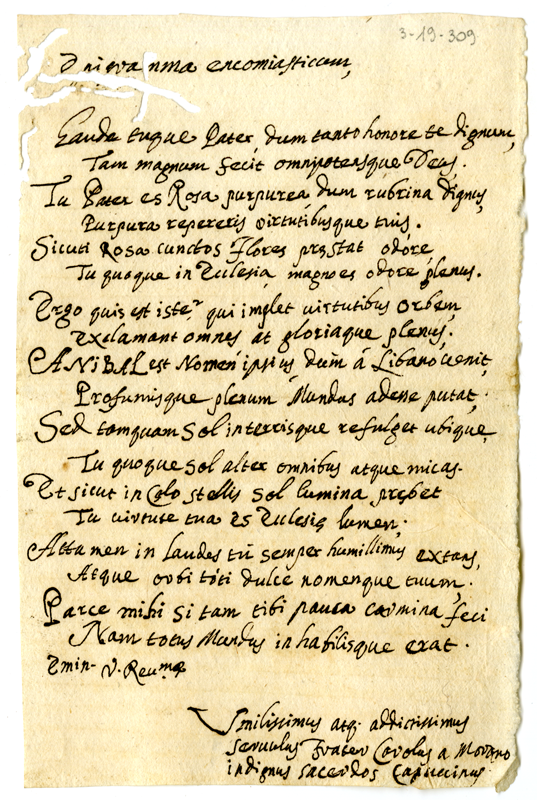 3-19-309
encomiasticum,
Gaude tuque Pater, dum tanto honore te dignum,
Tam magnum fecit omnipotensque Deus.
Tu Pater es Rosa purpurea, dum rubrina dignus,
Purpura repereris virtutibusque tuis.
Sicuti Rosa cunctos Flores pręstat odore,
Tu quoque in Eclesia magno es odore plenus.
Ergo quis est iste? qui implet virtutibus orbem,
Exclamant omnes at gloriaque plenus.
ANIBAL est Nomen ipsius dum á Libano venit,
Profumisque plenum Mundus adesse putat.
Sed tamquam Sol in terrisque refulget ubique,
Tu quoque Sol alter omnibus atque micas.
Et sicut in Cęlo stellis Sol lumina prębet
Tu virtute tua es Eclesię lumen.
Attamen in laudes tũ semper humillimus extans,
Atque orbi toti dulce nomenque tuum.
Parce mihi si tam tibi pauca carmina feci
Nam totus Mundus inhabilisque erat.
Emin. V. Reumę
Vmilissimus atq. addictissimus
servulus Frater Carolus a Morano
indignus sacerdos Capuccinus.